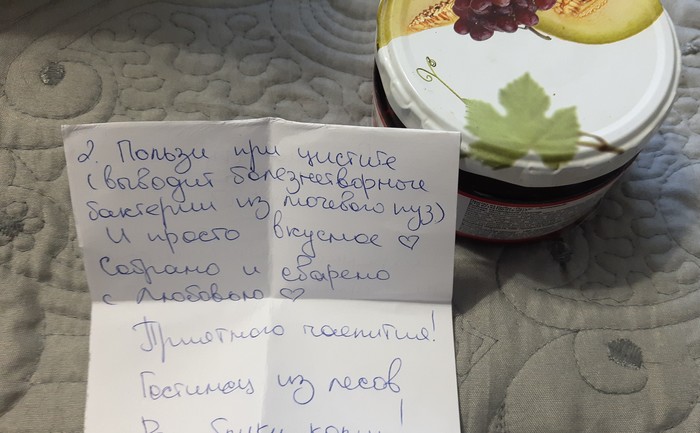 2. Пользи при цистите
(выводит болезнетворные
бактерии из мочевого пуз)
И просто вкусное ♡
Собрано и сварено
с любовью ♡
Приятного чаепития!
Гостинец из лесов